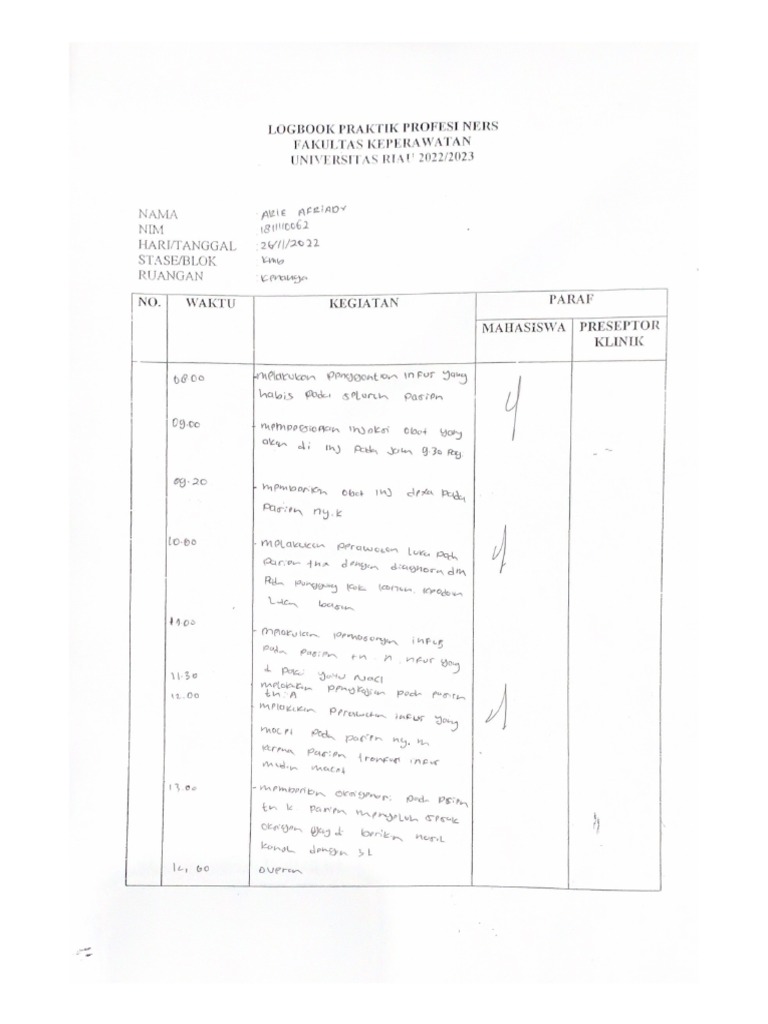 LOGBOOK PRAKTIK PROFESI NERS
FAKULTAS KEPERAWATAN
UNIVERSITAS RIAU 2022/2023
NAMA : ARIE AFRIADY
NIM 1811110062
HARI/TANGGAL : 26/11/2022
STASE/BLOK : KMB
RUANGAN : Kenanga
NO. WAKTU KEGIATAN PARAF
MAHASISWA PRESEPTOR
KLINIK
08.00 - melakukan penggantian infus yang
habis pada seluruh pasien
09.00 - mempersiapkan injeksi obat yang
akan di inj pada jam 9.30
09.20 - memberikan obat inj dexa pada
pasien ny.k
10.00 - melakukan perawatan luka pada
pasien dengan diagnosa dm
pada punggung kaki kanan.
luka basah
11.00 - melakukan pemasangan infus
pada pasien tn. n. infus yang
di pakai yaitu NaCl
11.30 melakukan pengkajian pada pasien
tn. A
12.00 - melakukan perawatan infus yang
macet pada pasien ny. m
karena pasien infus
macet
13.00 - memberikan oksigenasi pada pasien
tn k pasien mengeluh sesak
oksigen yang di berikan nasal
kanul dengan 3L
Overan